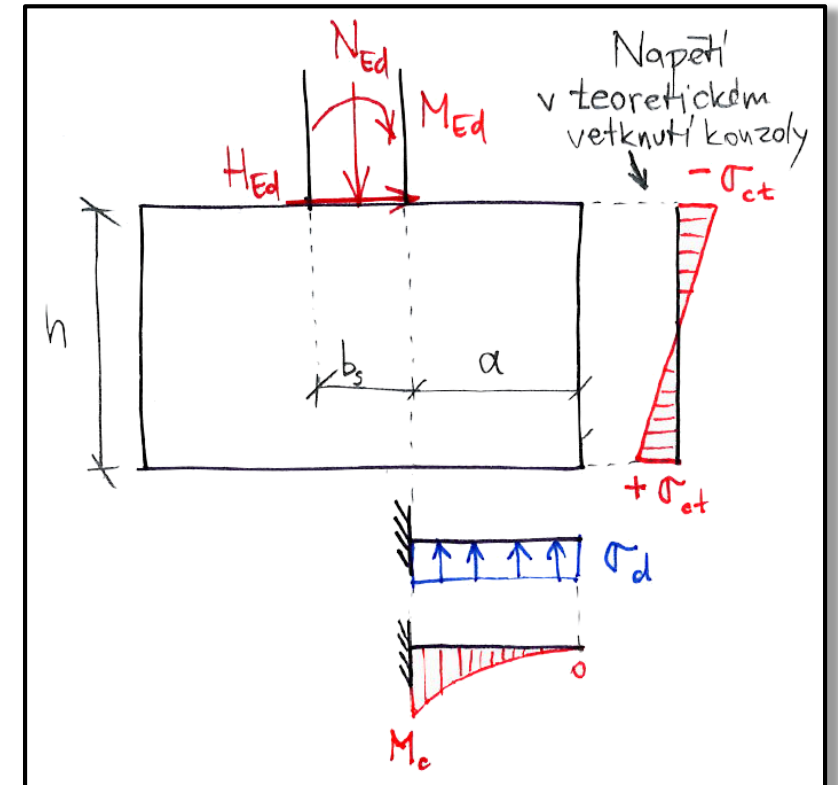 N_Ed
M_Ed
H_Ed
Napětí
v teoretickém
vetknutí konzoly
- σ_ct
h
b_s
a
+ σ_ct
σ_d
0
M_c